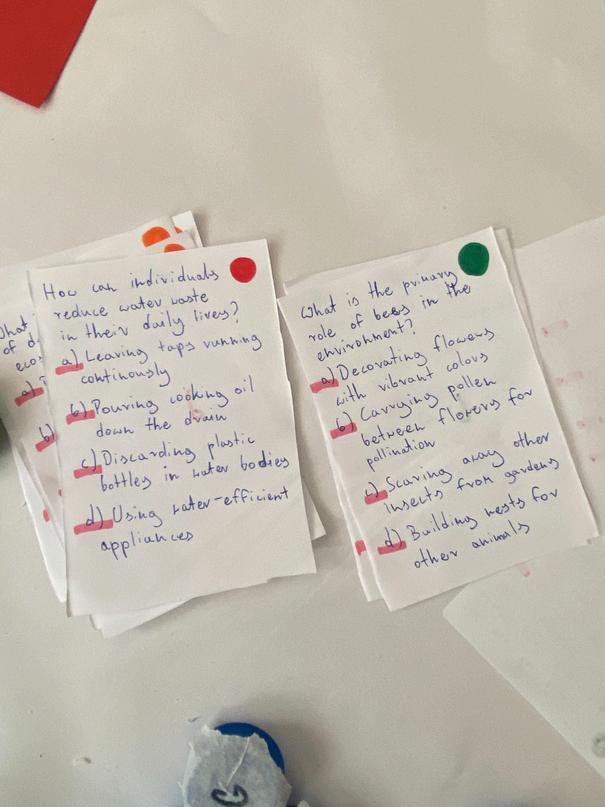 How can individuals
reduce water waste
in their daily lives?
a) Leaving taps running
continously
b) Pouring cooking oil
down the drain
c) Discarding plastic
bottles in water bodies
d) Using water-efficient
appliances
What is the primary
role of bees in the
environment?
a) Decorating flowers
with vibrant colors
b) Carrying pollen
between flowers for
pollination
c) Scaring away other
insects from gardens
d) Building nests for
other animals
What
of d
eco
a)
b)
C